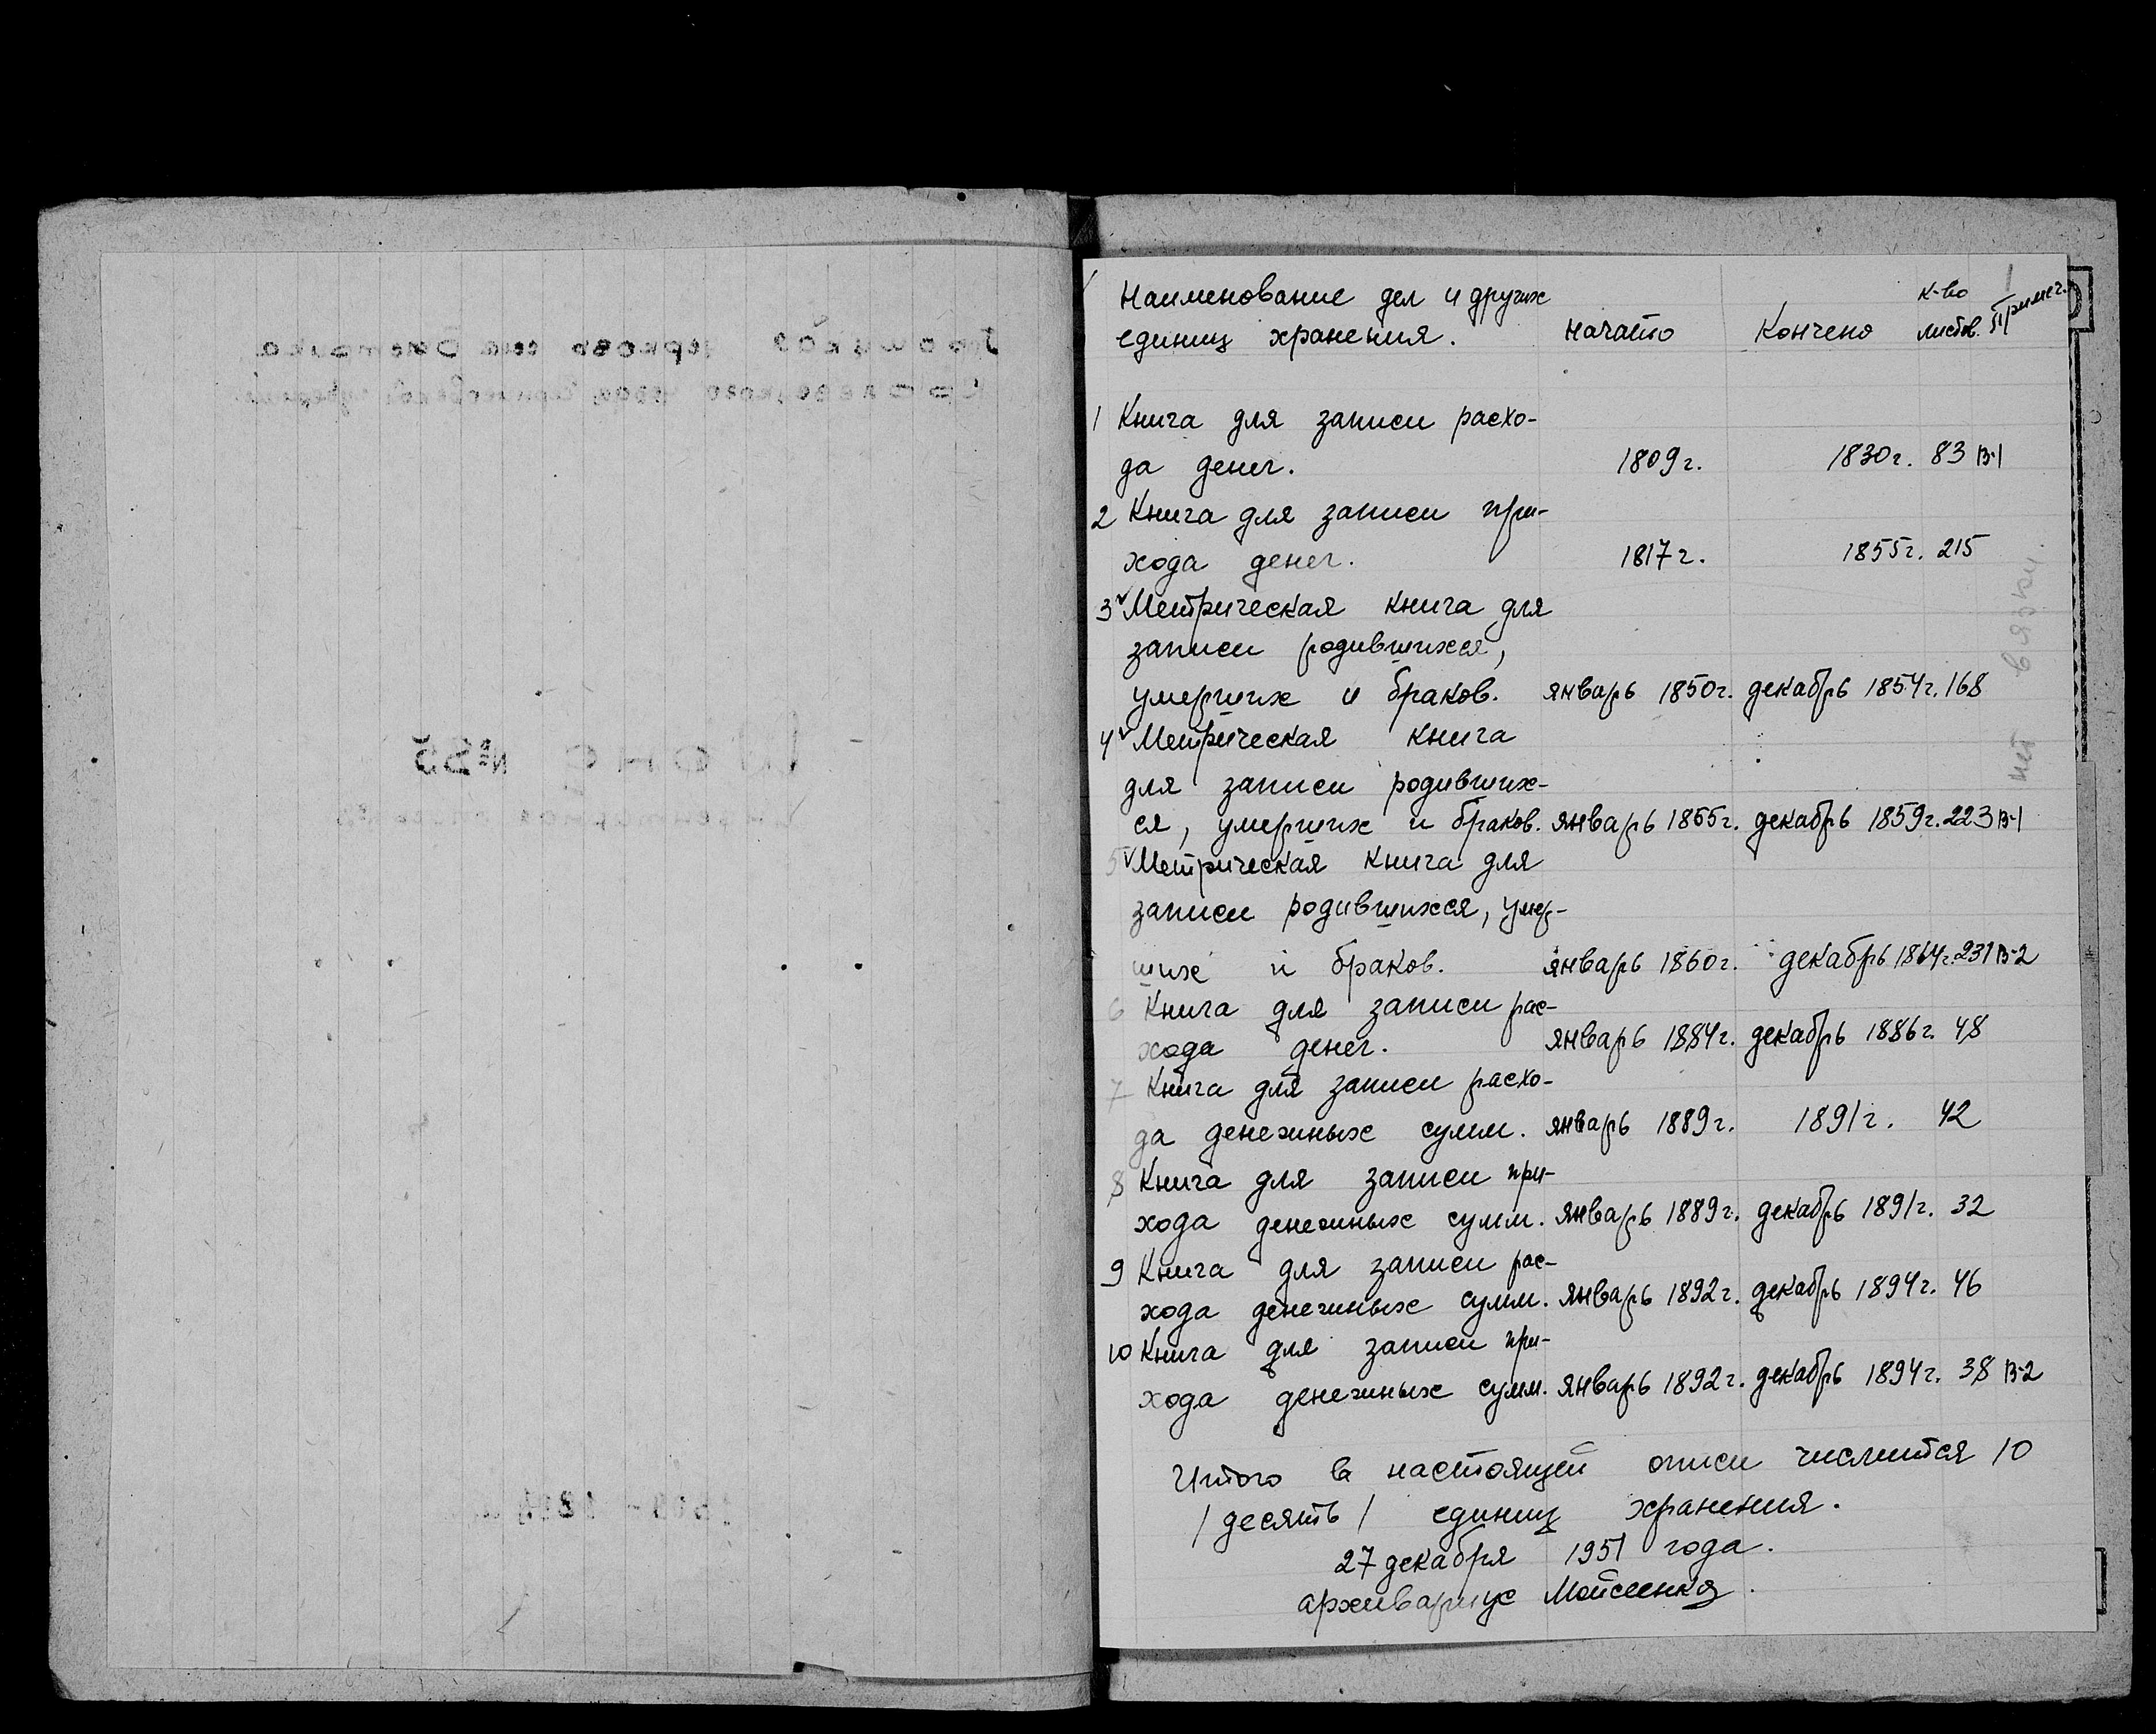 Наименование дел и других
единиц хранения.
начато
Кончено
к-во
листов.
Примеч.
1
1 Книга для записи расхо-
да денег. 1809г. 1830г. 83 В-1
2 Книга для записи при-
хода денег. 1817г. 1855г. 215
3 Метрическая книга для
записи родившихся,
умерших и браков. январь 1850г. декабрь 1854г. 168
4 Метрическая книга
для записи родивших-
ся, умерших и браков. январь 1855г. декабрь 1859г. 223 В-1
5 Метрическая книга для
записи родившихся, умер-
ших и браков. январь 1860г. декабрь 1864г. 231 В-2
6 Книга для записи рас-
хода денег. январь 1884г. декабрь 1886г. 48
7 Книга для записи расхо-
да денежных сумм. январь 1889г. 1891г. 42
8 Книга для записи при-
хода денежных сумм. январь 1889г. декабрь 1891г. 32
9 Книга для записи рас-
хода денежных сумм. январь 1892г. декабрь 1894г. 46
10 Книга для записи при-
хода денежных сумм. январь 1892г. декабрь 1894г. 38 В-2
нет вязки.
Итого в настоящей описи числится 10
/десять/ единиц хранения.
27 декабря 1951 года.
архивариус